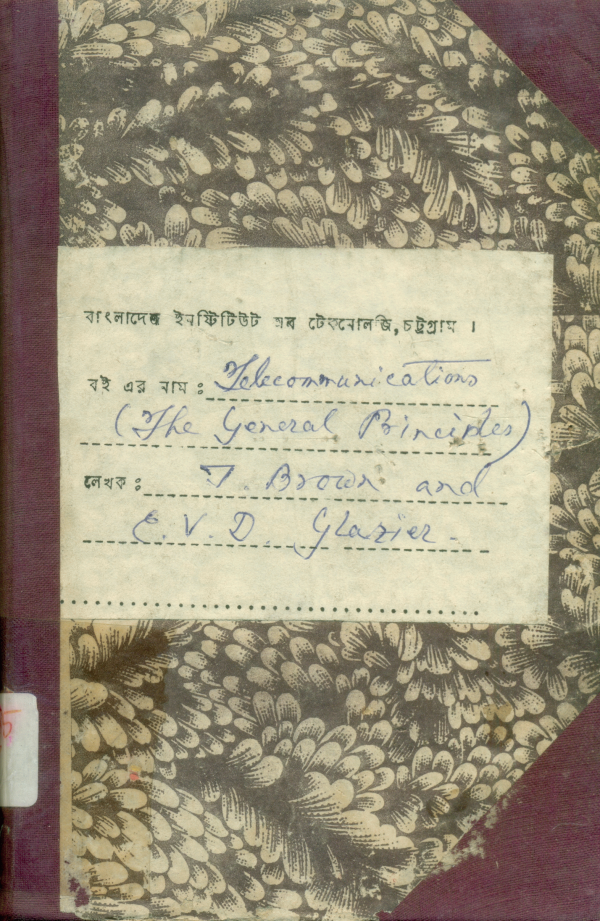 বাংলাদেশ ইনষ্টিটিউট অব টেকনোলজি, চট্টগ্রাম ।
বই এর নাম : Telecommunications
(The General Principles)
লেখক : J. Brown and
E. V. D. Glazier -
5